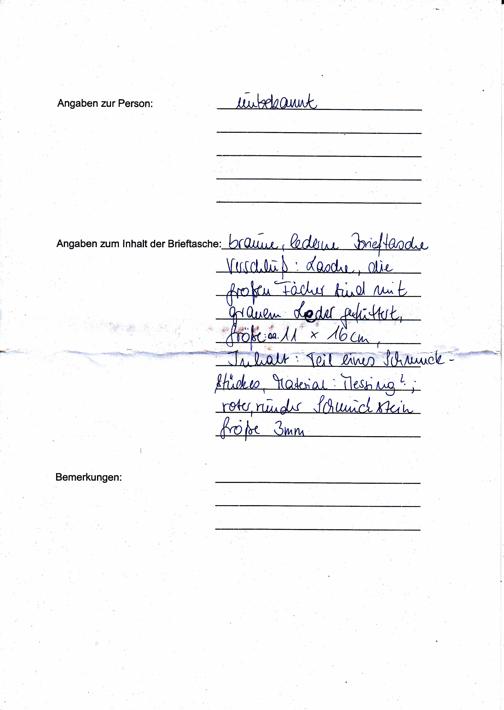 Angaben zur Person: unbekannt
Angaben zum Inhalt der Brieftasche: braune, lederne Brieftasche
Verschluß: Lasche, die
großen Fächer sind mit
grauem Leder gefüttert,
Größe ca 11 × 16 cm,
Inhalt: Teil eines Schmuck-
stückes, Material: Messing?;
roter, runder Schmuckstein
Größe 3mm
Bemerkungen: